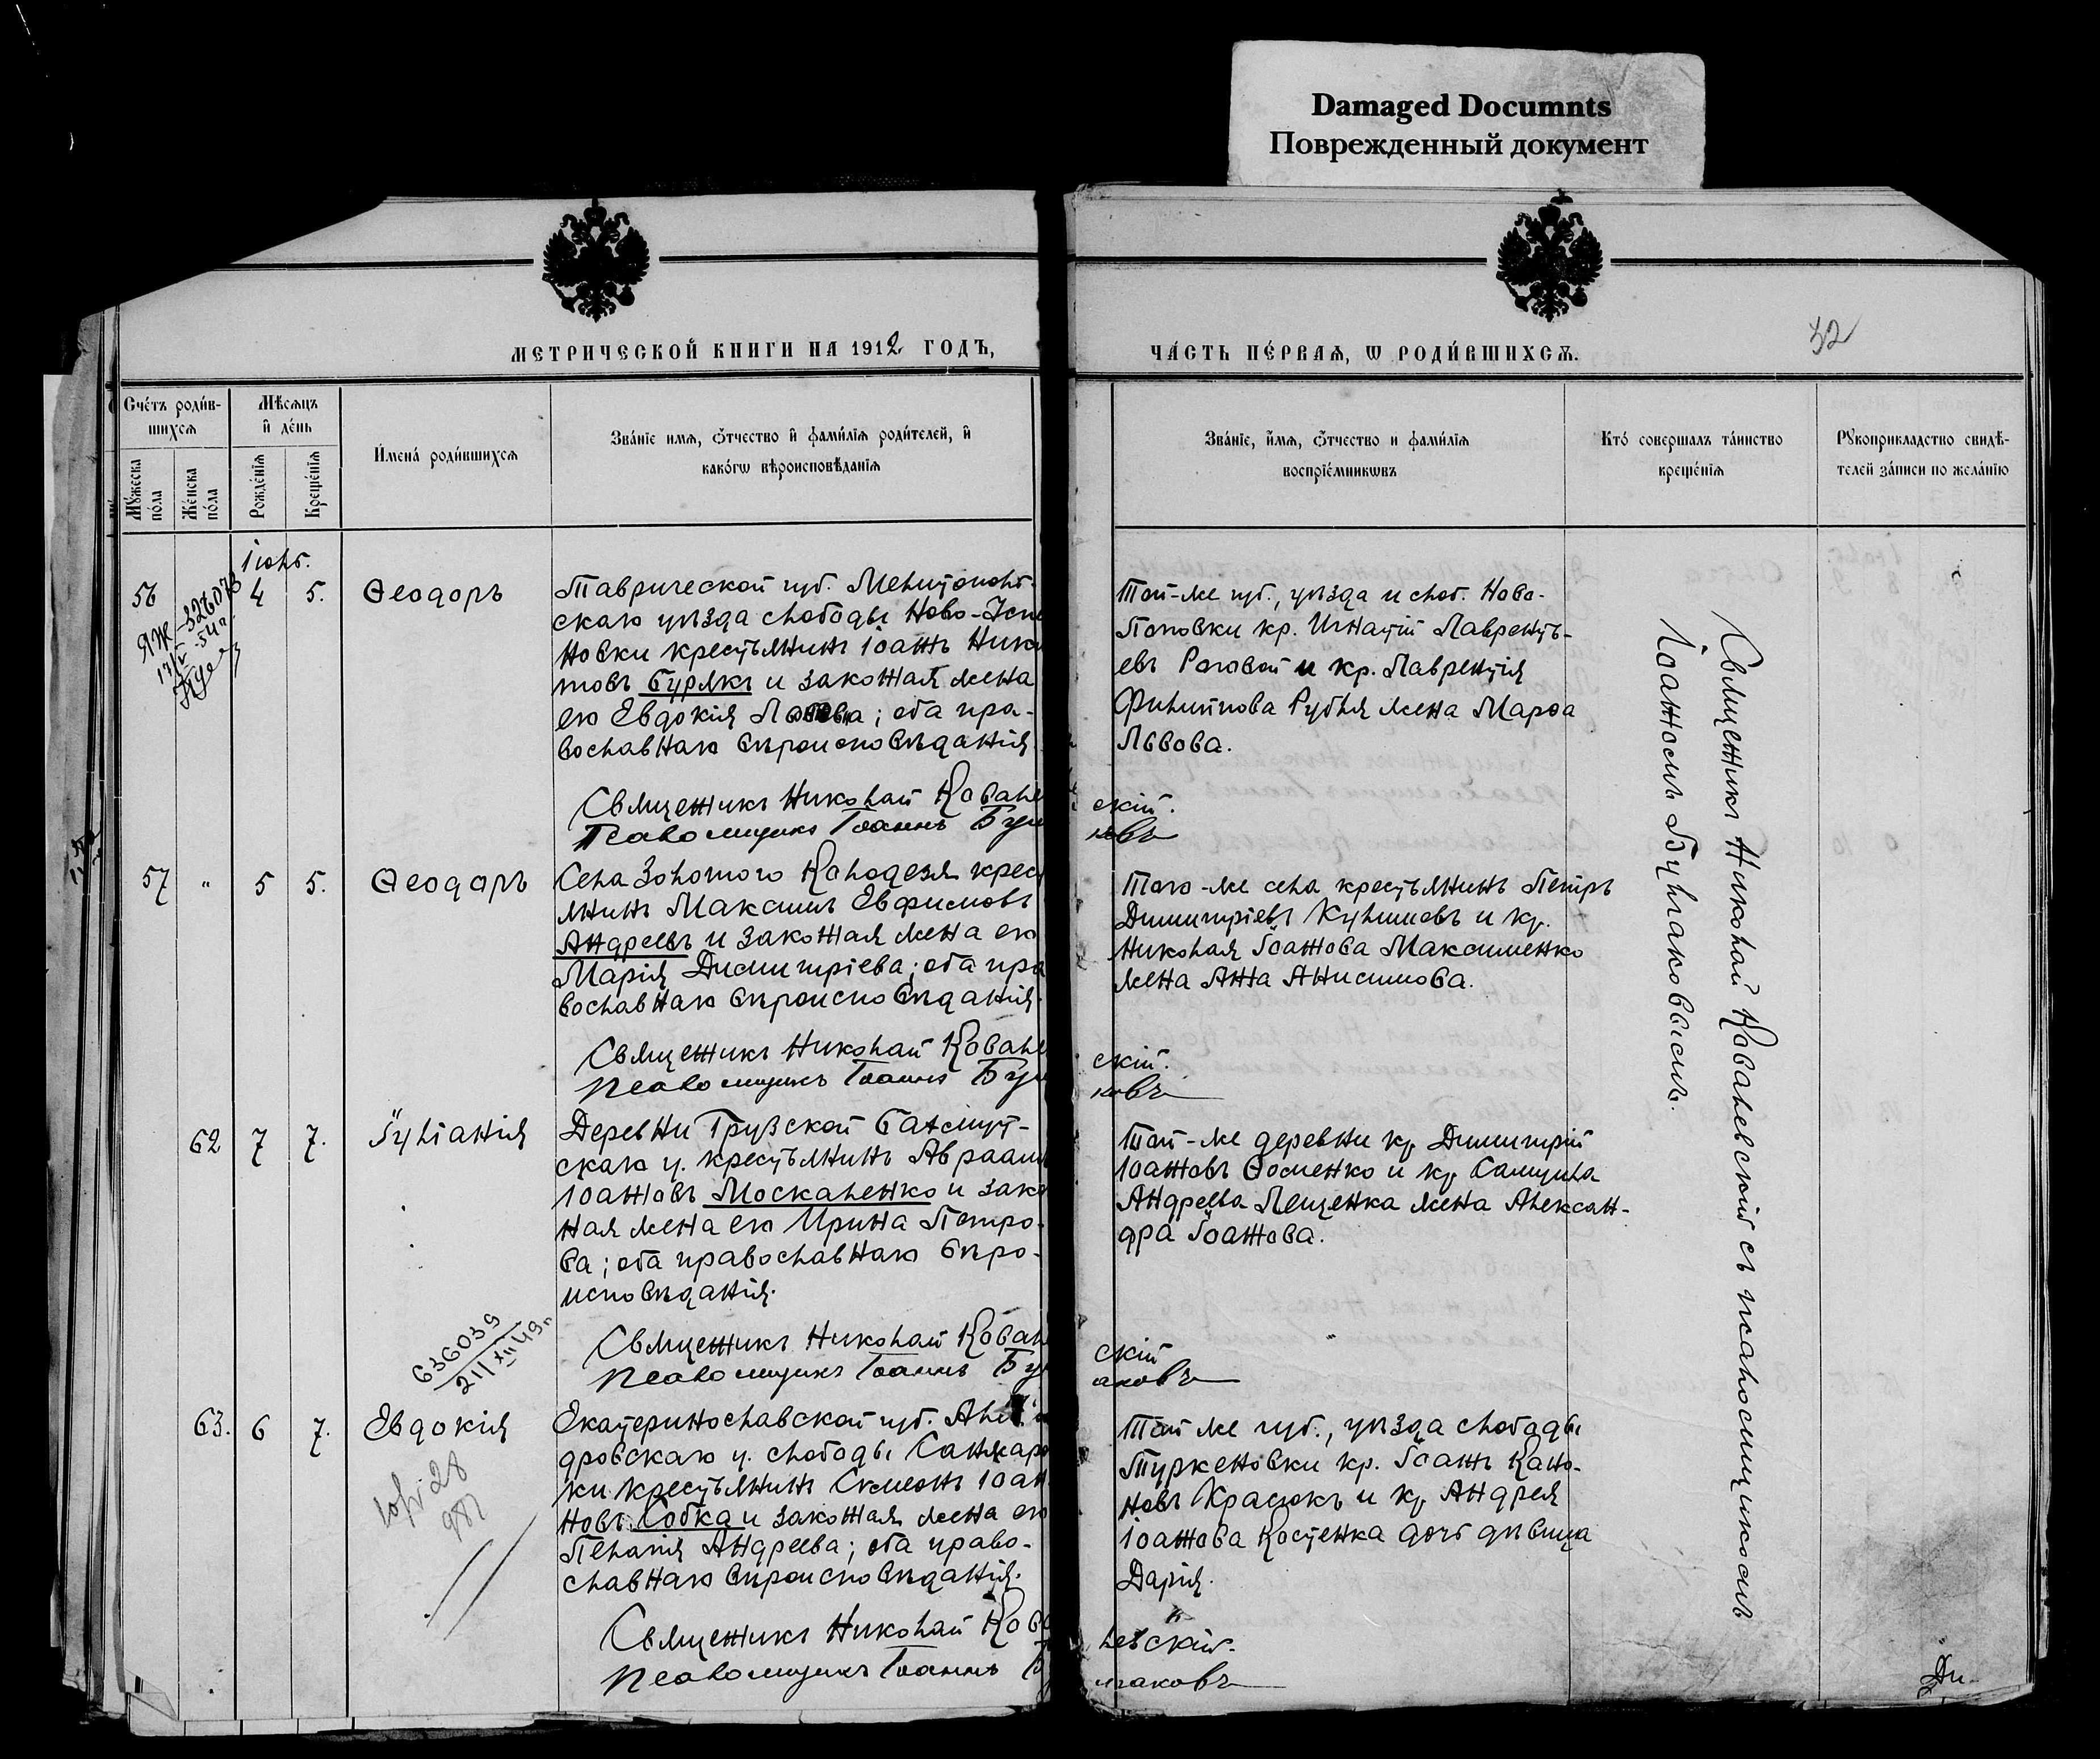 Damaged Documnts
Поврежденный документ
МЕТРИЧЕСКОЙ КНИГИ НА 1912 ГОДЪ,
ЧАСТЬ ПЕРВАЯ, Ѡ РОДИВШИХСЯ.
32
Счетъ родив-
шихся
Мѣсяцъ
и день
Мужеска
пола
Женска
пола
Рожденія
Крещенія
Имена родившихся
Званіе имя, ѿчество и фамилія родителей, и
какогѡ вѣроисповѣданія
Званіе, имя, ѿчество и фамилія
воспріемникѡвъ
Кто совершалъ таинство
крещенія
Рукоприкладство свидѣ-
телей записи по желанію
Іюнь.
56
4
5.
Ѳеодоръ
Таврической губ. Мелитополь-
скаго уѣзда слободы Ново-
новки крестьянинъ Іоаннъ Ники
товъ Бурякъ и законная жена
его Евдокія; оба пра-
вославнаго вѣроисповѣданія
Священникъ Николай Ковале
Псаломщикъ Іоаннъ Бул
Той-же губ., уѣзда и слоб. Ново-
Поповки кр. Игнатій Лаврентъ-
евъ Роговой и кр. Лаврентія
Филиппова Рубля жена Марѳа
Львова.
скій.
ковъ
57
"
5
5.
Ѳеодоръ
Села Золотого Колодезя крес
янинъ Максимъ Евфимовъ
Андреевъ и законная жена его
Марія Димитріева; оба пра
вославнаго вѣроисповѣданія.
Священникъ Николай Ковале
Псаломщикъ Іоаннъ Бул
Того-же села крестьянинъ Петръ
Димитріевъ Кулишовъ и кр.
Николая Іоаннова Максименко
жена Анна Анисимова.
скій.
ковъ
62
7
7.
Іуліанія
Деревни Грузской Бахмут-
скаго у. крестьянинъ Авраам
Іоанновъ Москаленко и зако
ная жена его Ирина Петро-
ва; оба православнаго вѣро-
исповѣданія.
Священникъ Николай Ковал
Псаломщикъ Іоаннъ Бу
Той-же деревни кр. Димитрій
Іоанновъ Ѳоменко и кр. Самуила
Андреева Лещенка жена Алексан-
дра Іоаннова.
скій
аковъ
636039
21/XII 49г
63.
6
7.
Евдокія
Екатеринославской губ. Але
дровскаго у. слободы Санжаро
ки крестьянинъ Симеонъ Іоан
новъ Собка и законная жена его
Пелагія Андреева; оба право-
славнаго вѣроисповѣданія.
Священникъ Николай Ков
Псаломщикъ Іоаннъ Б
Той же губ., уѣзда слободы
Туркеновки кр. Іоаннъ Коно-
новъ Красюкъ и кр. Андрея
Іоаннова Костенка дочь дѣвица
Дарія.
левскій.
лгаковъ
Священникъ Николай Ковалевскій съ псаломщикомъ
Іоанномъ Булгаковымъ.